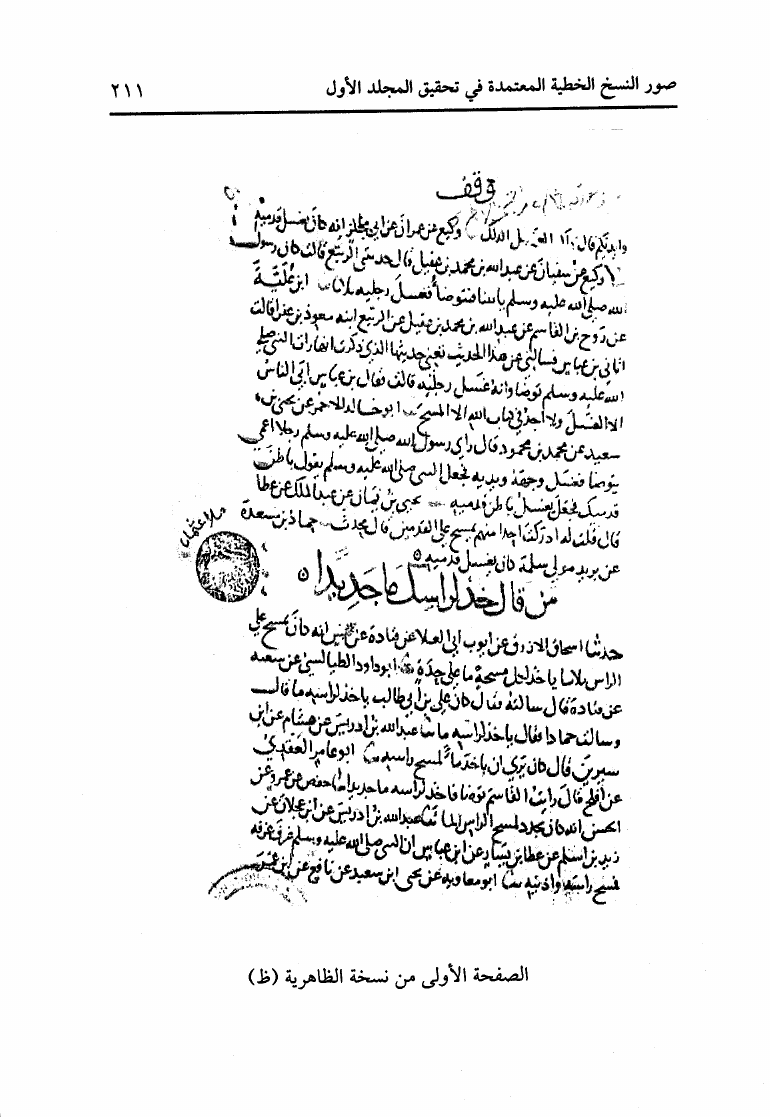 صور النسخ الخطية المعتمدة في تحقيق المجلد الأول
٢١١
وقف
وكيع عن عمران عن ابي مجلز انه كان يغسل قدميه
وكيع عن سفيان عن عبد الله بن محمد بن عقيل قال حدثتني الربيع قالت كان رسول
الله صلى الله عليه وسلم ياتينا فتوضأ فغسل رجليه ثلاثا ابن علية
عن روح بن القاسم عن عبد الله بن محمد بن عقيل عن الربيع ابنه معوذ بن عفرا قالت
اتاني بن عباس فسالني عن هذا الحديث تعني حديثها الذي ذكرت انها رات النبي صلى
الله عليه وسلم توضا وانه غسل رجليه قالت فقال بن عباس ابى الناس
الا الغسل ولا اجد في كتاب الله الا المسح ابو خالد الاحمر عن يحيى بن
سعيد عن محمد بن محمود قال راى رسول الله صلى الله عليه وسلم رجلا اعمى
يتوضا فغسل وجهه ويديه فجعل النبي صلى الله عليه وسلم يقول باطن
قدميك فجعل يغسل باطن قدميه يحيى بن يمان عن عبد الملك عن عطا
قال قلت له ادركت احدا منهم يمسح على القدمين قال محدث حماد بن مسعدة
عن يزيد مولى سلمة كان يغسل قدميه
من قال خذ لراسك ما جديدا
حدثنا اسحاق الازرق عن ايوب ابي العلا عن قتادة عن انس انه كان يمسح على
الراس ثلاثا ياخذ لكل مسحة ما على حدة ابو داود الطيالسي عن شعبه
عن قتادة قال سالته فقال كان علي بن ابي طالب ياخذ لراسه ما قال
وسالت حمادا فقال ياخذ لراسه ما عبد الله بن ادريس عن هشام عن ابن
سيرين قال كان يرى ان ياخذ ما لمسح راسه ابو عامر العقدي
عن افلح قال رايت القاسم توضا فاخذ لراسه ما جديدا حفص عن عمرو عن
الحسن انه كان يجدد لمسح الراس الما عبد الله بن ادريس عن ابن عجلان عن
زيد بن اسلم عن عطا بن يسار عن ابن عباس ان النبي صلى الله عليه وسلم غرف غرفه
فمسح راسه واذنيه ابو معاويه عن يحيى ابن سعيد عن نافع عن ابن عمر
الصفحة الأولى من نسخة الظاهرية (ظ)